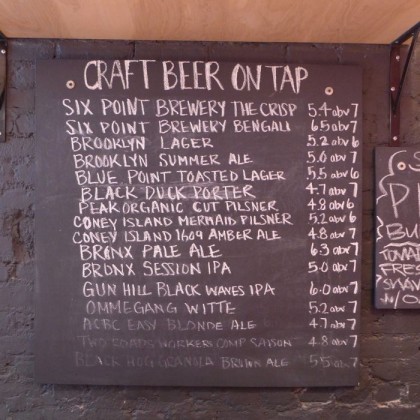 CRAFT BEER ON TAP
SIX POINT BREWERY THE CRISP 5.4 abv 7
SIX POINT BREWERY BENGALI 6.5 abv 7
BROOKLYN LAGER 5.2 abv 6
BROOKLYN SUMMER ALE 5.0 abv 7
BLUE POINT TOASTED LAGER 5.5 abv 6
BLACK DUCK PORTER 4.7 abv 7
PEAK ORGANIC CUT PILSNER 4.8 abv 6
CONEY ISLAND MERMAID PILSNER 5.2 abv 6
CONEY ISLAND 1609 AMBER ALE 4.8 abv 7
BRONX PALE ALE 6.3 abv 7
BRONX SESSION IPA 5.0 abv 7
GUN HILL BLACK WAVES IPA 6.0 abv 7
OMMEGANG WITTE 5.2 abv 7
ACBC EASY BLONDE ALE 4.7 abv 7
TWO ROADS WORKERS COMP SAISON 4.8 abv 7
BLACK HOG GRANOLA BROWN ALE 5.5 abv 7
BU
TOMA
FRES